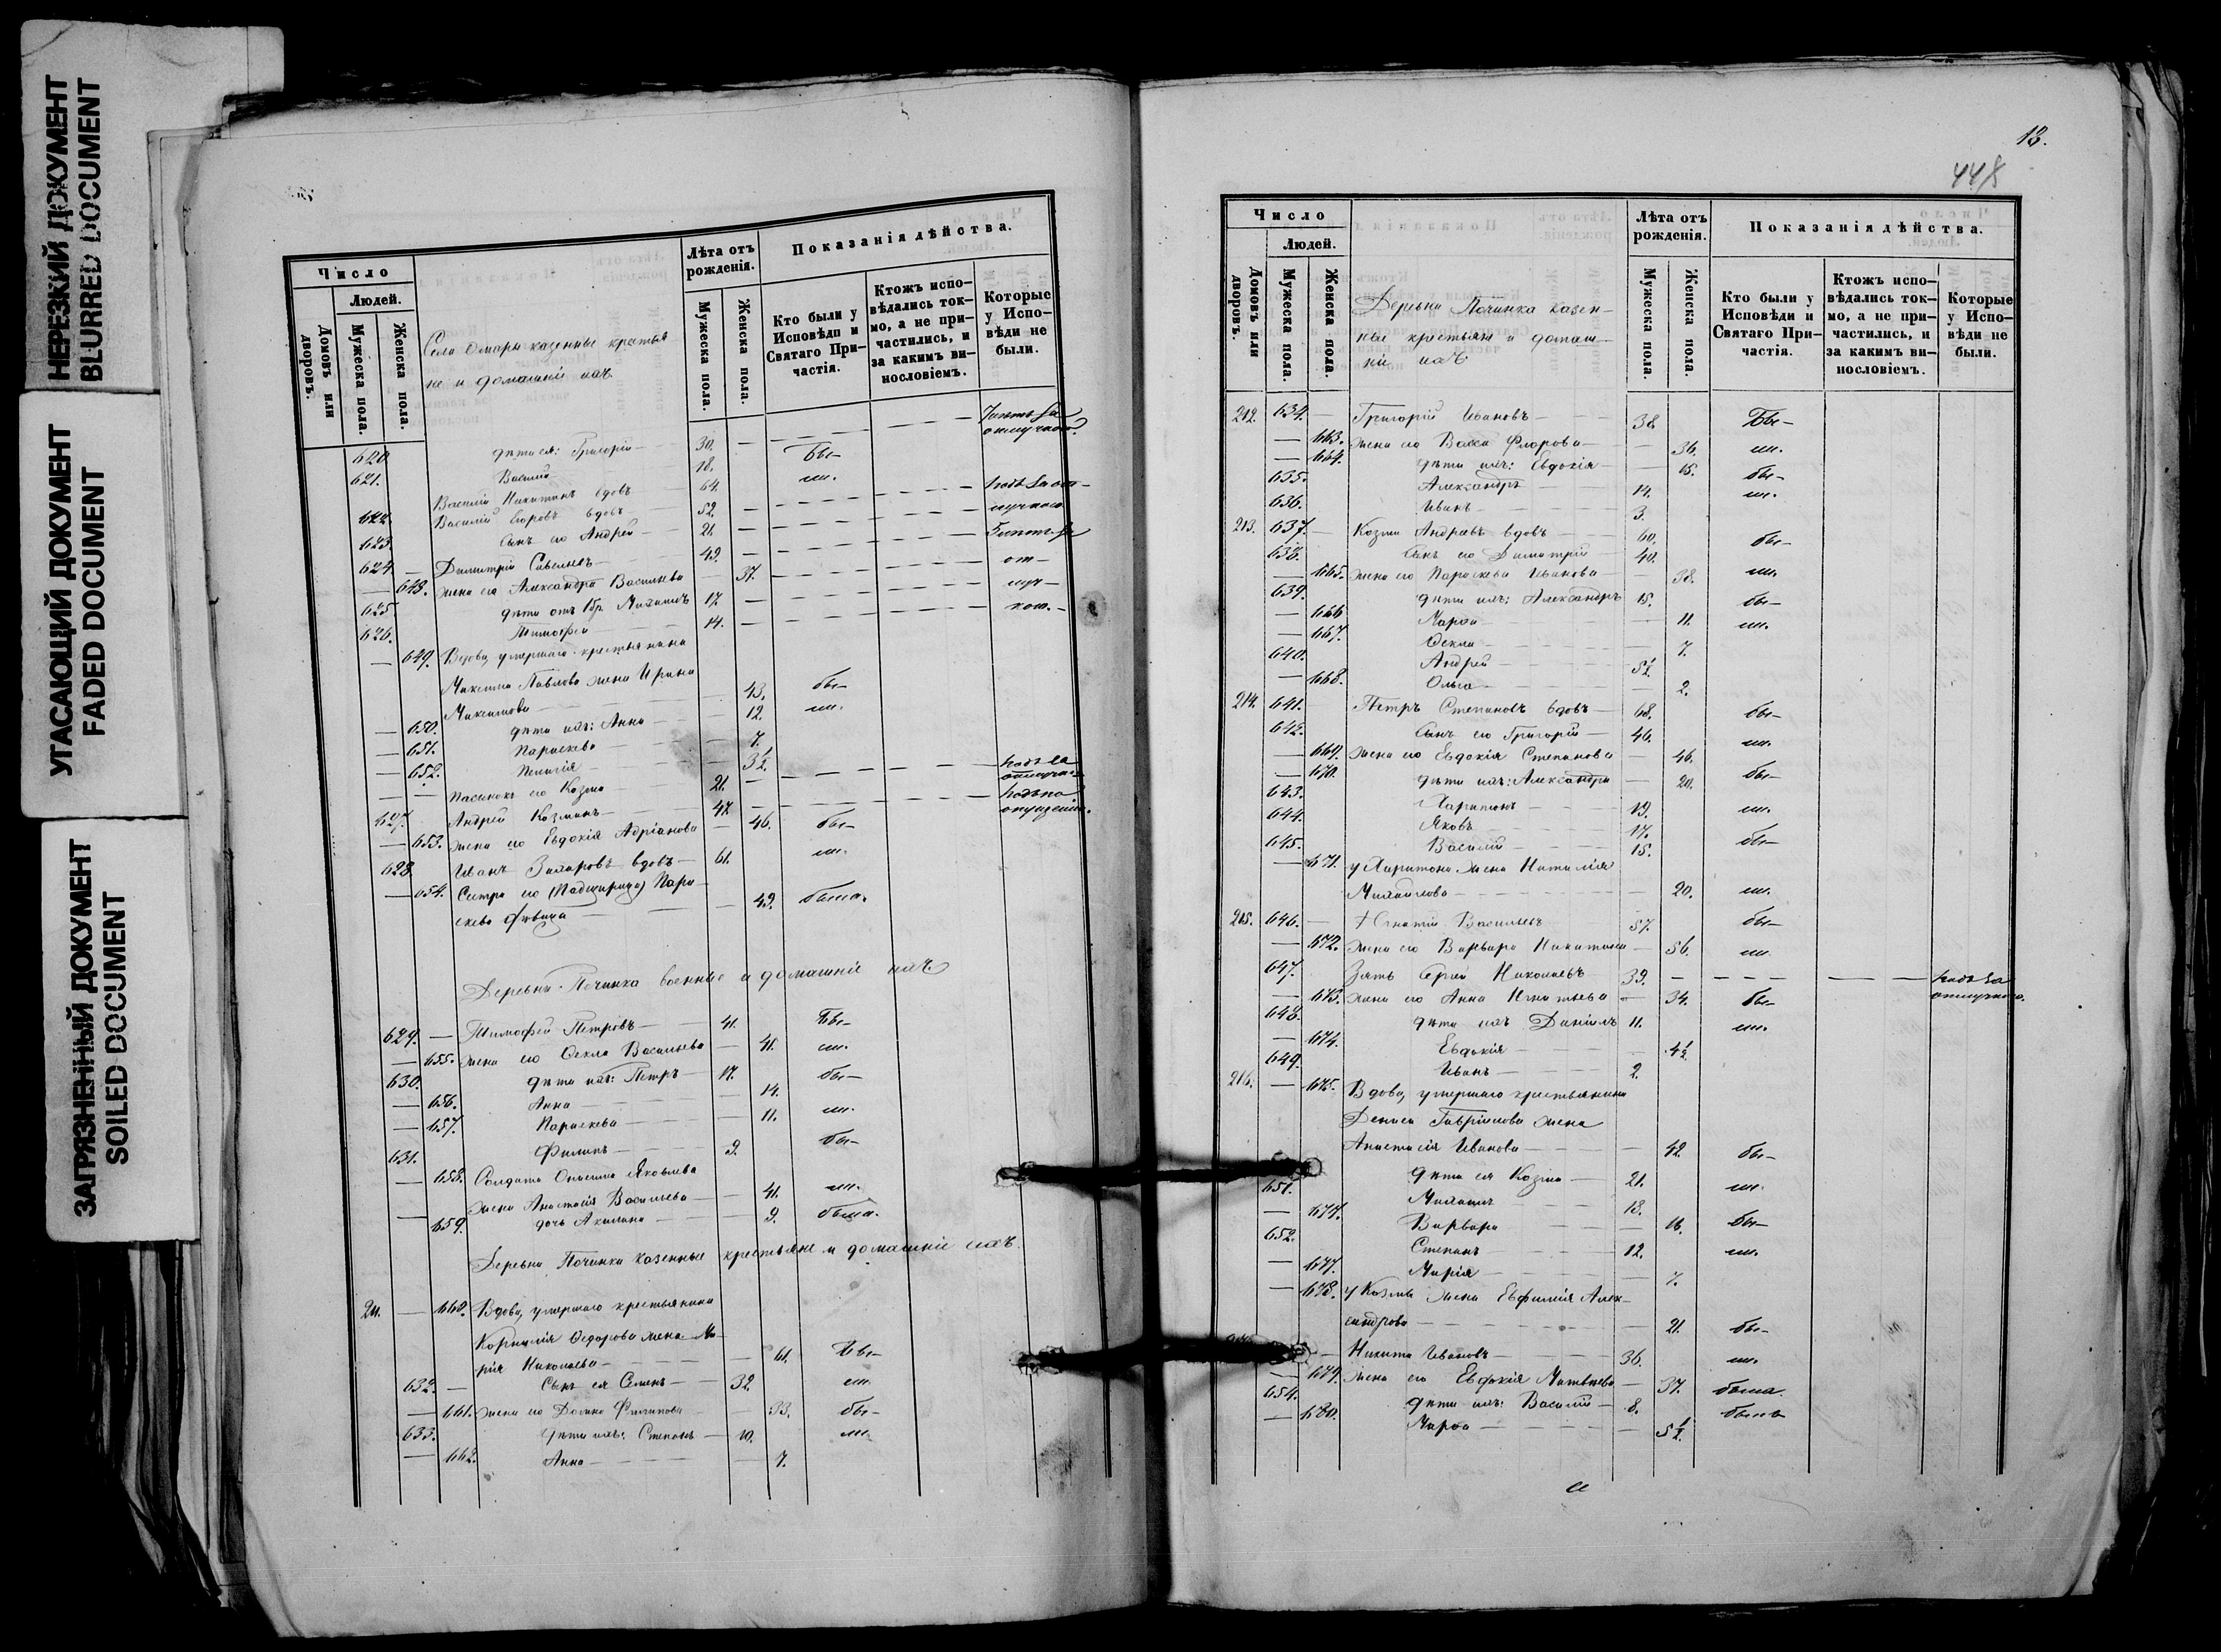 НЕРЕЗКИЙ ДОКУМЕНТ
BLURRED DOCUMENT
УГАСАЮЩИЙ ДОКУМЕНТ
FADED DOCUMENT
ЗАГРЯЗНЕННЫЙ ДОКУМЕНТ
SOILED DOCUMENT
Число
Людей.
Домовъ или дворовъ.
Мужеска пола.
Женска пола.
Лѣта отъ рожденія.
Мужеска пола.
Женска пола.
Показанія дѣйства.
Кто были у Исповѣди и Святаго Причастія.
Ктожъ исповѣдались токмо, а не причастились, и за какимъ винословіемъ.
Которые у Исповѣди не были.
Села казенные крестья
не и домашніе ихъ
620 дѣти ея: Григорій 30.
621. Василій 18. Бы-
Василій Никитинъ вдовъ 64. ли.
623. Василій вдовъ 52.
Сынъ его Андрей 21.
624. Димитрій Савельевъ 49.
648. Жена его Александра Васильева 37.
625 дѣти отъ 1 бр. Михаилъ 17
626. Тимофей 14.
649. Вдова, умершаго крестьянина
Максима Павлова жена Ирина
Максимова 43. бы-
650. дѣти ихъ: Анна 12. ли.
651. Параскева 7.
652. 3½
Пасынокъ его Козма 21.
627. Андрей Козминъ 47.
653. Жена его Евдокія Адріанова 46. бы-
628. Иванъ Захаровъ вдовъ 61. ли.
654. Сестра его Пара-
скева дѣвица 49. была.
Деревни Починка военные и домашніе ихъ
629. Тимофей Петровъ 41. Бы-
655. Жена его Ѳекла Васильева 41. ли.
630. дѣти ихъ: Петръ 17. бы-
656. Анна 14.
657. Параскева 11. ли.
631. Филипъ 9. бы-
658. Солдата Яковлева
жена Анастасія Васильева 41. ли.
659. дочь Акилина 9. была.
Деревни Починка казенные крестьяне и домашніе ихъ.
211. 660. Вдова, умершаго крестьянина
Корнилія Ѳедорова жена Ма-
рія Николаева 61. Бы-
632. Сынъ ея Семенъ 32. ли
661. Жена его Домна Филипова 33. бы-
633. дѣти ихъ: Степанъ 10. ли.
662. Анна 7.
13.
448
Число
Людей.
Домовъ или дворовъ.
Мужеска пола.
Женска пола.
Лѣта отъ рожденія.
Мужеска пола.
Женска пола.
Показанія дѣйства.
Кто были у Исповѣди и Святаго Причастія.
Ктожъ исповѣдались токмо, а не причастились, и за какимъ винословіемъ.
Которые у Исповѣди не были.
Деревни Починка казен-
ные крестьяне и домаш-
ніе ихъ
212. 634. Григорій Ивановъ 38. Бы-
663. Жена его Васса Флорова 36. ли.
664. дѣти ихъ: Евдокія 15. бы-
635. Александръ 14. ли.
636. Иванъ 3.
213. 637. Козма Андреевъ вдовъ 60. бы-
638. Сынъ его Димитрій 40.
665. Жена его Параскева Иванова 38. ли.
639. дѣти ихъ: Александръ 15. бы-
666 Марѳа 11. ли.
667. Ѳекла 7.
640. Андрей 5½
668. Ольга 2.
214. 641. Петръ Степановъ вдовъ 68. бы-
642. Сынъ его Григорій 46. ли.
669. Жена его Евдокія Степанова 46.
670. дѣти ихъ: Александра 20. бы-
643. Харитонъ 19. ли.
644. Яковъ 17.
645. Василій 15. бы-
671. у Харитона жена Наталія
Михайлова 20. ли.
215. 646. Игнатій Васильевъ 57. бы-
672. Жена его Варвара Никитина 56. ли
647. Зять Сергѣй Николаевъ 39.
673. Жена его Анна Игнатьева 34. бы-
648. дѣти ихъ Даніилъ 11. ли.
674. Евдокія 4½
649. Иванъ 2.
216. 675. Вдова, умершаго крестьянина
Дениса Гавріилова жена
Анастасія Иванова 42. бы-
дѣти ея Козма 21. ли.
651. Михаилъ 18.
677. Варвара 16. бы-
652. Степанъ 12. ли.
677. Марія 7.
678. у Козмы жена Евфимія Алек-
сандрова 21. бы-
Никита Ивановъ 36. ли.
679. Жена его Евдокія Матвѣева 37. была.
654. дѣти ихъ: Василій 8. былъ
680. Марѳа 5½